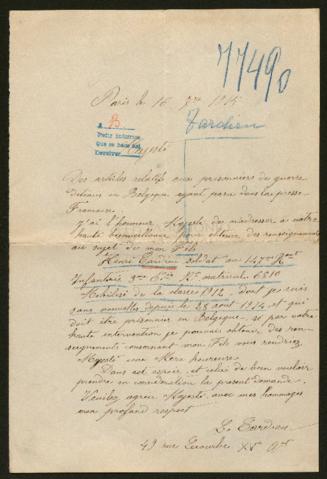 77490
Paris le 16 7bre 1915
Tardieu
B
Pedir noticias
Que se hace así
Devolver
Majesté
Des articles relatifs aux prisonniers de guerre
détenus en Belgique ayant parus dans la presse
Française
J'ai l'honneur Majesté de m'adresser à votre
haute bienveillance pour obtenir des renseignements
au sujet de mon Fils
Henri Tardieu soldat au 147me Régt
Infanterie 9me Cie No matricule 6810
Mobilisé de la classe 1912 dont je suis
sans nouvelles depuis le 28 août 1914 et qui
doit être prisonnier en Belgique, si par votre
haute intervention je pouvais obtenir des ren-
seignements concernant mon Fils vous rendriez
Majesté une Mère heureuse
Dans cet espoir et celui de bien vouloir
prendre en considération la présente demande
Veuillez agréer Majesté avec mes hommages
mon profond respect
Tardieu
49 rue Lecourbe XVe